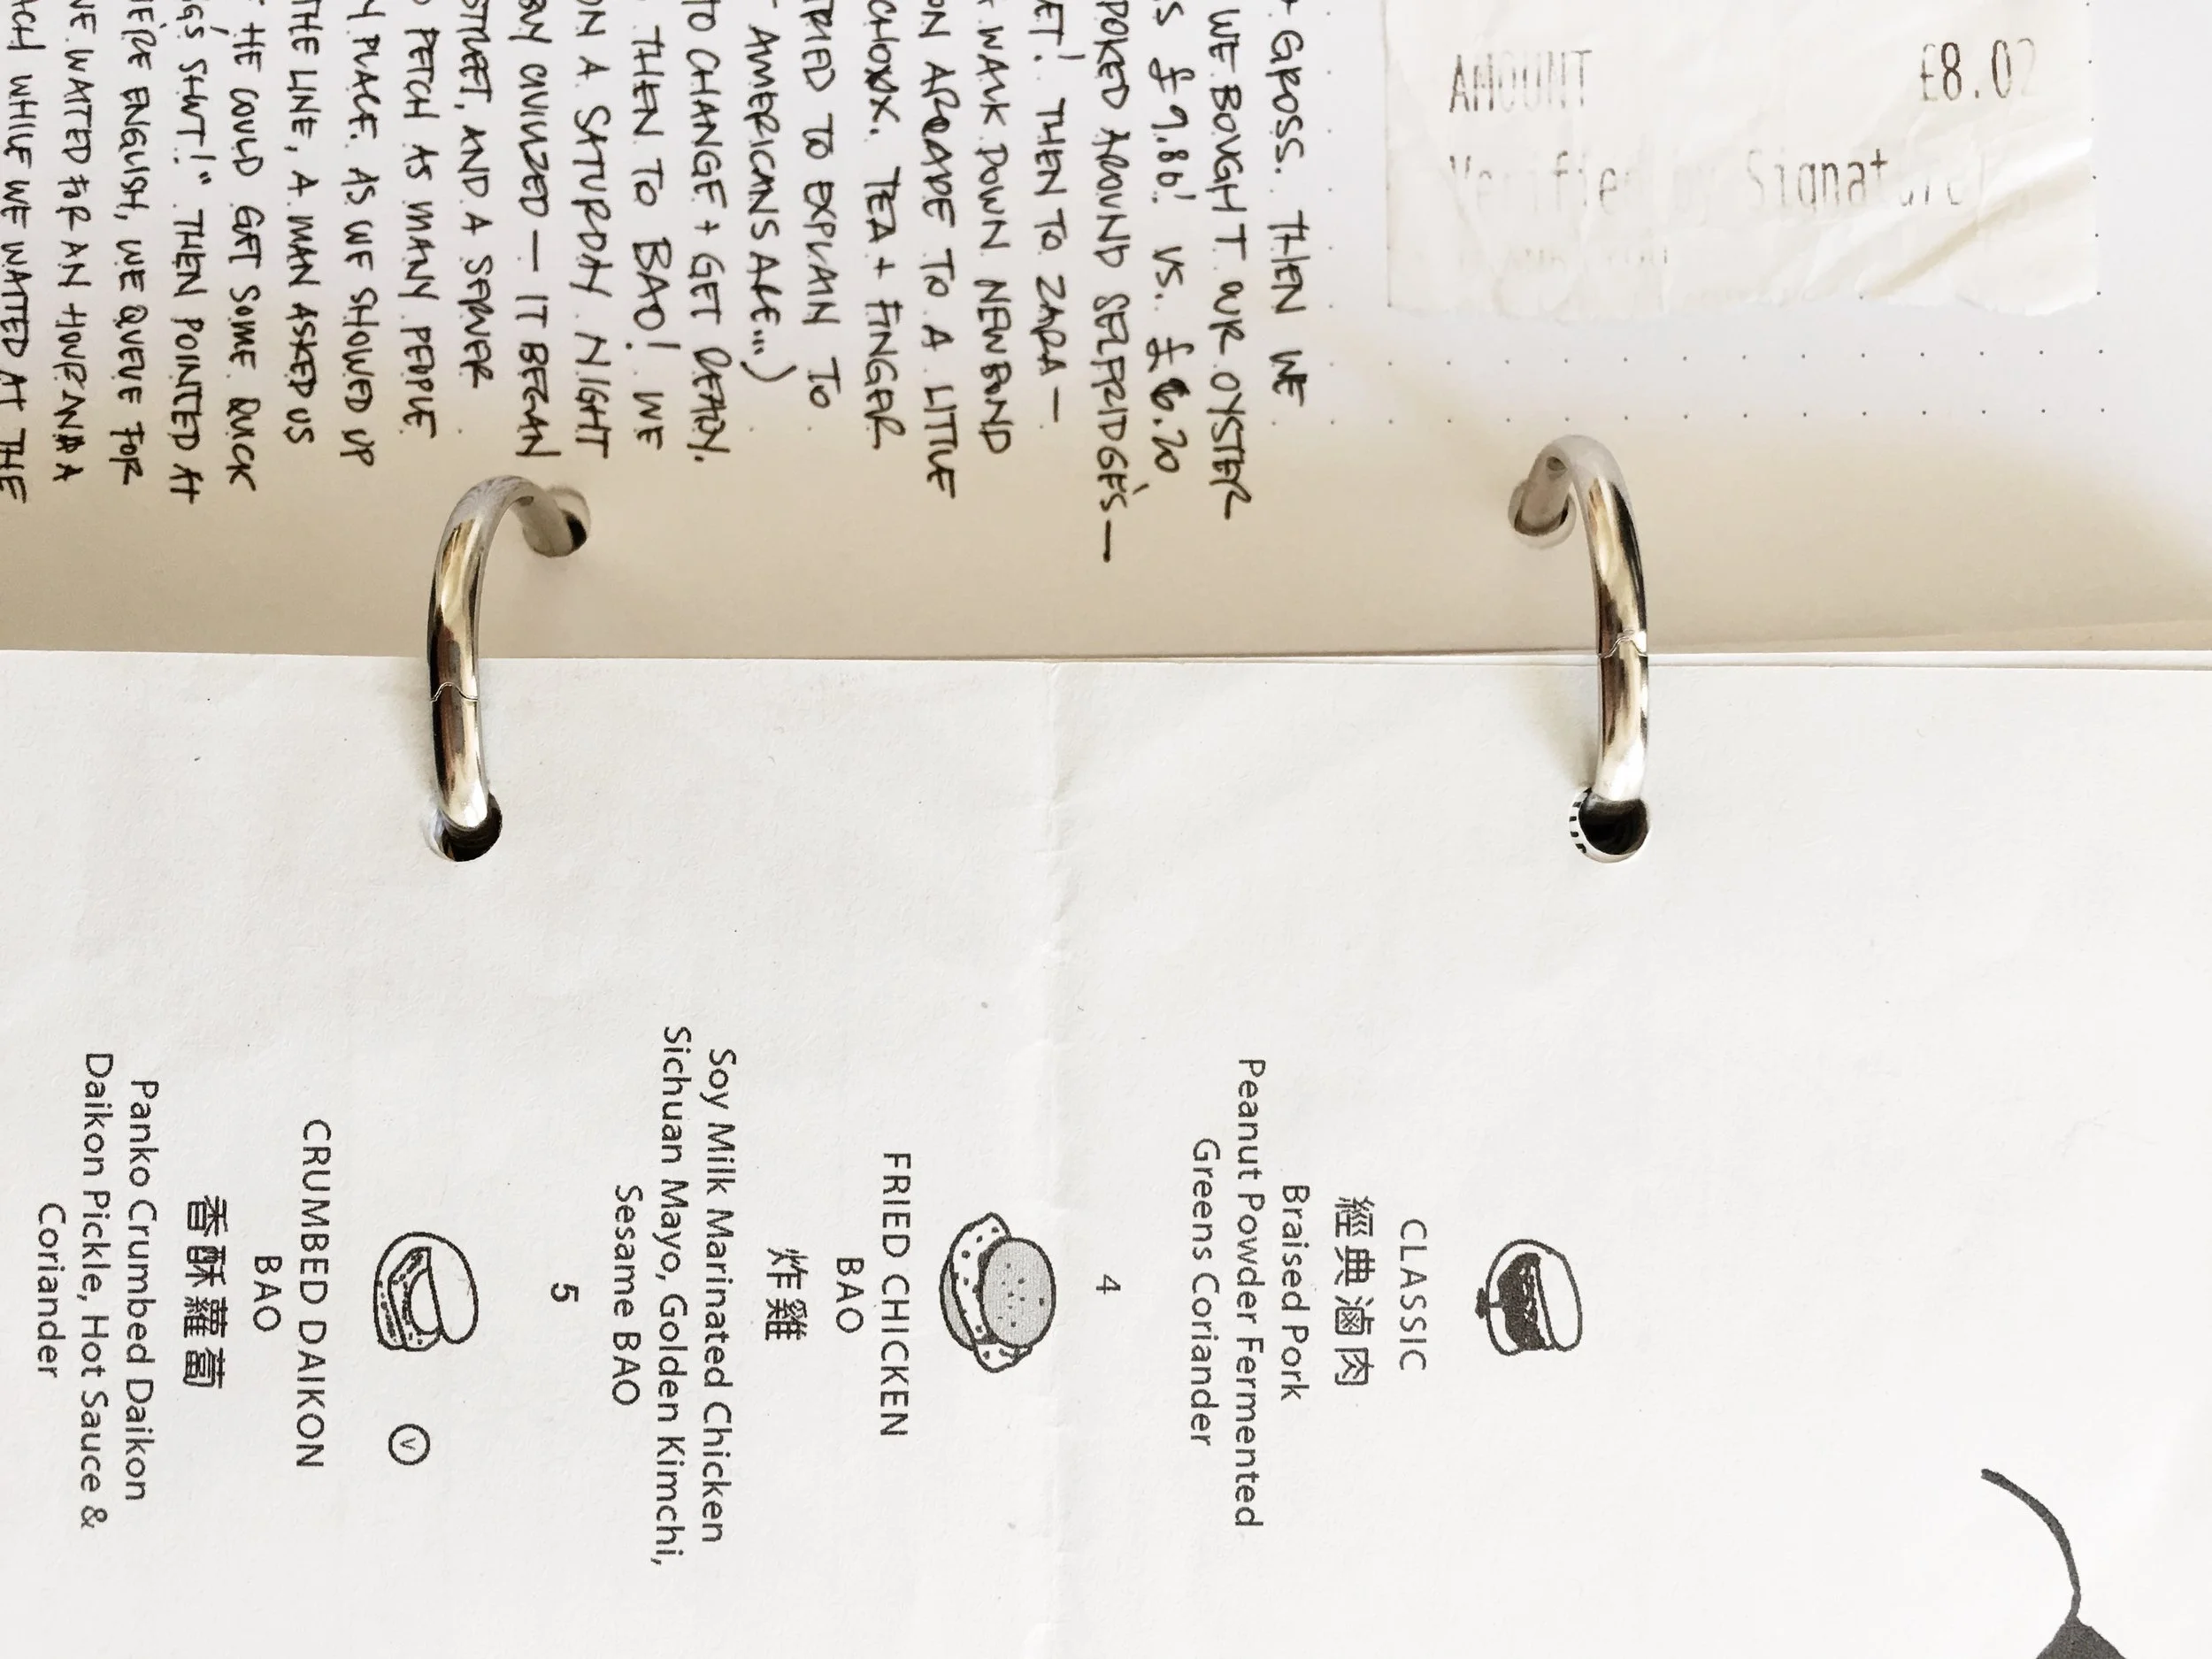 AMOUNT £8.02
Verified by Signature
+ GROSS. THEN WE
WE BOUGHT OUR OYSTER
S £9.80! VS. £6.20
POKED AROUND SELFRIDGE'S —
ET! THEN TO ZARA —
WALK DOWN NEW BOND
ON ARCADE TO A LITTLE
CHOUX. TEA + FINGER
TRIED TO EXPLAIN TO
AMERICANS ARE...)
TO CHANGE + GET READY.
THEN TO BAO! WE
ON A SATURDAY NIGHT
CIVILIZED — IT BEGAN
STREET, AND A SERVER
FETCH AS MANY PEOPLE
PLACE. AS WE SHOWED UP
THE LINE, A MAN ASKED US
HE COULD GET SOME QUICK
SHUT!" THEN POINTED AT
ENGLISH, WE QUEUE FOR
WE WAITED FOR AN HOUR AND A
WHILE WE WAITED AT THE
CLASSIC
經典滷肉
Braised Pork
Peanut Powder Fermented
Greens Coriander
4
FRIED CHICKEN
BAO
炸雞
Soy Milk Marinated Chicken
Sichuan Mayo, Golden Kimchi,
Sesame BAO
5
V
CRUMBED DAIKON
BAO
香酥蘿蔔
Panko Crumbed Daikon
Daikon Pickle, Hot Sauce &
Coriander